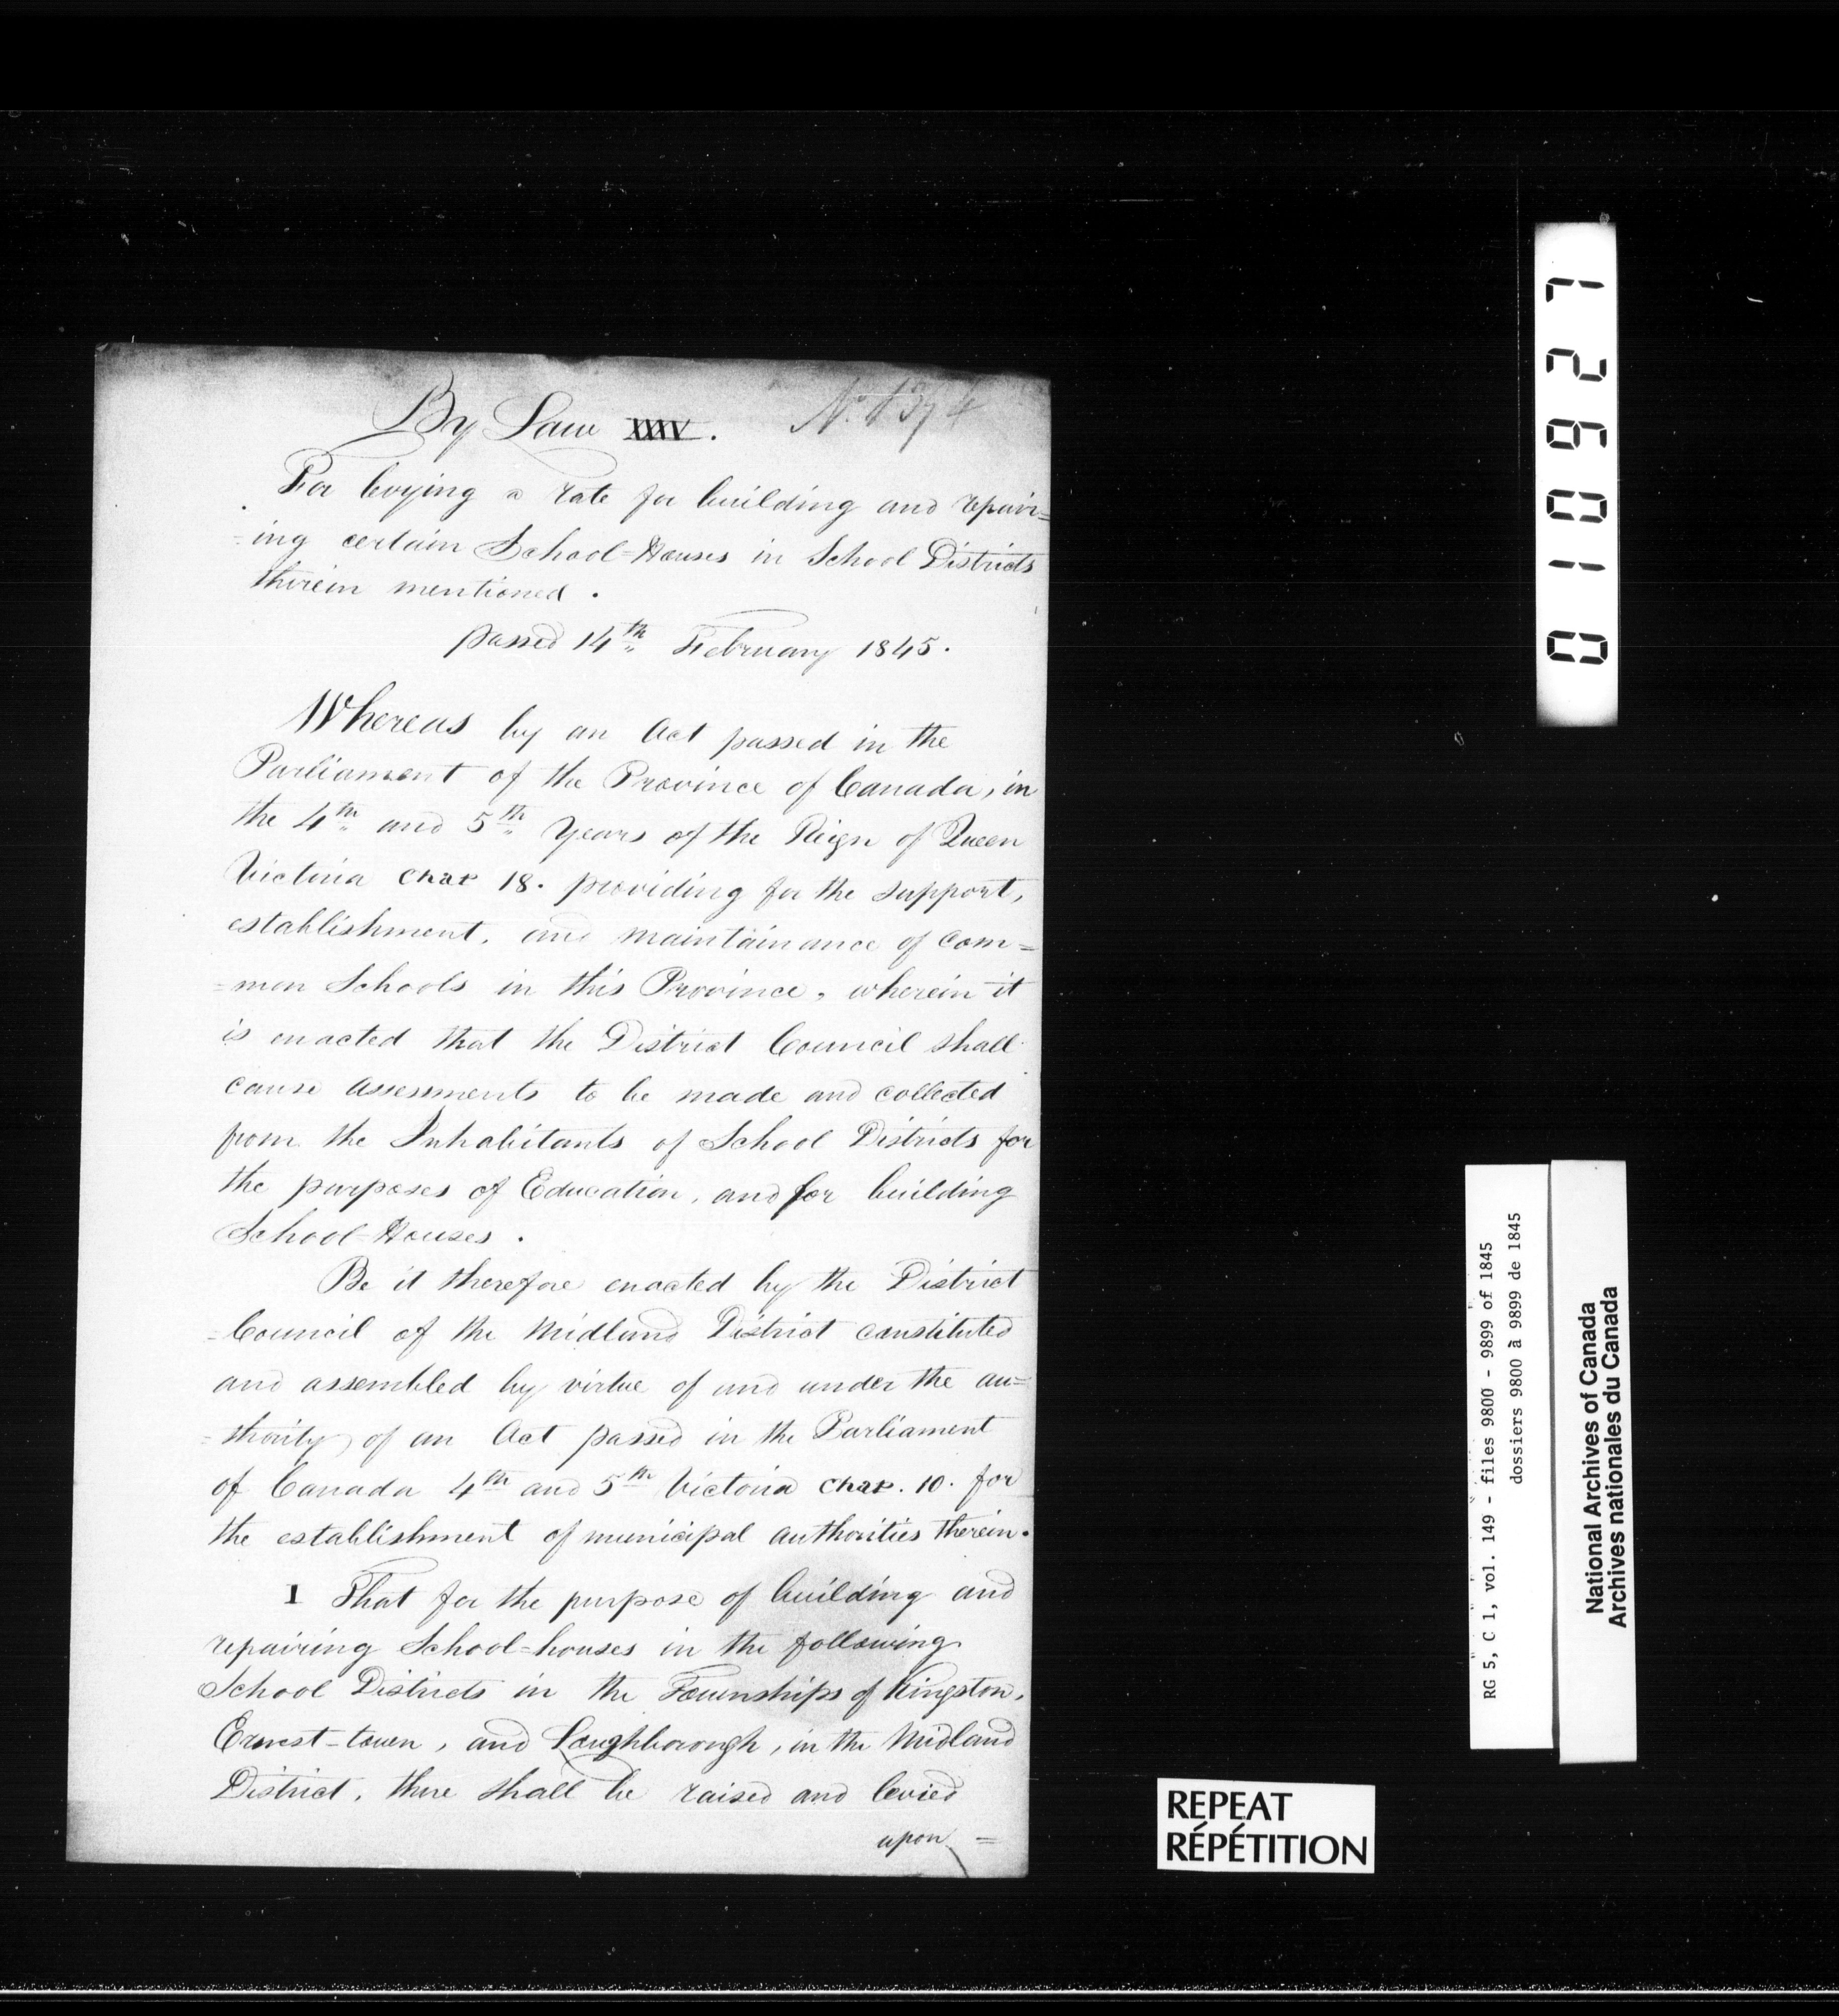 By Law XXXV. No. 1374
For levying a rate for building and repair=
=ing certain School=Houses in School Districts
therein mentioned.
passed 14th February 1845.
Whereas by an Act passed in the
Parliament of the Province of Canada, in
the 4th and 5th Years of the Reign of Queen
Victoria Chap 18. providing for the support,
establishment, and maintainance of com=
=mon Schools in this Province, wherein it
is enacted that the District Council shall
cause assessments to be made and collected
from the Inhabitants of School Districts for
the purposes of Education, and for building
School-Houses.
Be it therefore enacted by the District
=Council of the Midland District constituted
and assembled by virtue of and under the au=
=thority of an Act passed in the Parliament
of Canada 4th and 5th Victoria Chap. 10. for
the establishment of municipal authorities therein.
1 That for the purpose of building and
repairing School=houses in the following
School Districts in the Townships of Kingston,
Ernest-town, and Loughborough, in the Midland
District, there shall be raised and levied
upon =
010927
RG 5, C 1, vol. 149 - files 9800 - 9899 of 1845
dossiers 9800 à 9899 de 1845
National Archives of Canada
Archives nationales du Canada
REPEAT
RÉPÉTITION